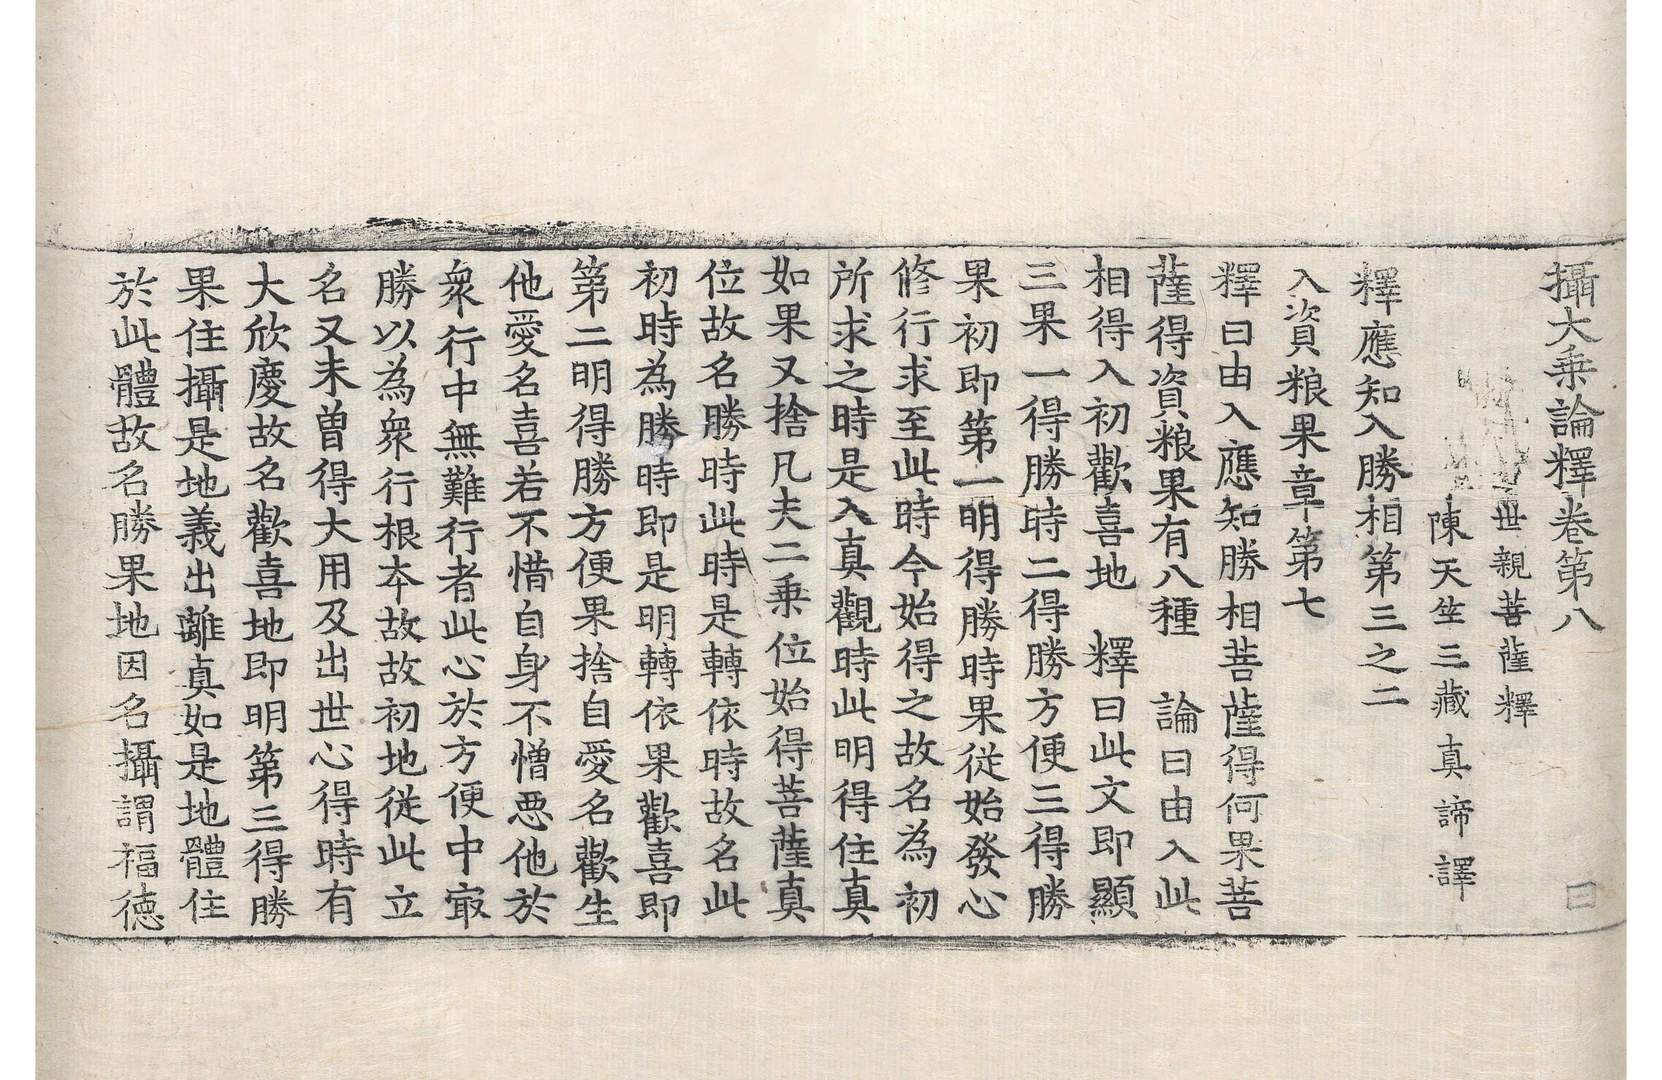 攝大乗論釋卷第八
世親菩薩釋
陳天竺三藏真諦譯
釋應知入勝相第三之二
入資粮果章第七
釋曰由入應知勝相菩薩得何果菩
薩得資粮果有八種 論曰由入此
相得入初歡喜地 釋曰此文即顯
三果一得勝時二得勝方便三得勝
果初即第一明得勝時果從始發心
修行求至此時今始得之故名為初
所求之時是入真觀時此明得住真
如果又捨凡夫二乗位始得菩薩真
位故名勝時此時是轉依時故名此
初時為勝時即是明轉依果歡喜即
第二明得勝方便果捨自愛名歡生
他愛名喜若不惜自身不憎惡他於
衆行中無難行者此心於方便中㝡
勝以為衆行根本故故初地從此立
名又未曽得大用及出世心得時有
大欣慶故名歡喜地即明第三得勝
果住攝是地義出離真如是地體住
於此體故名勝果地因名攝謂福德